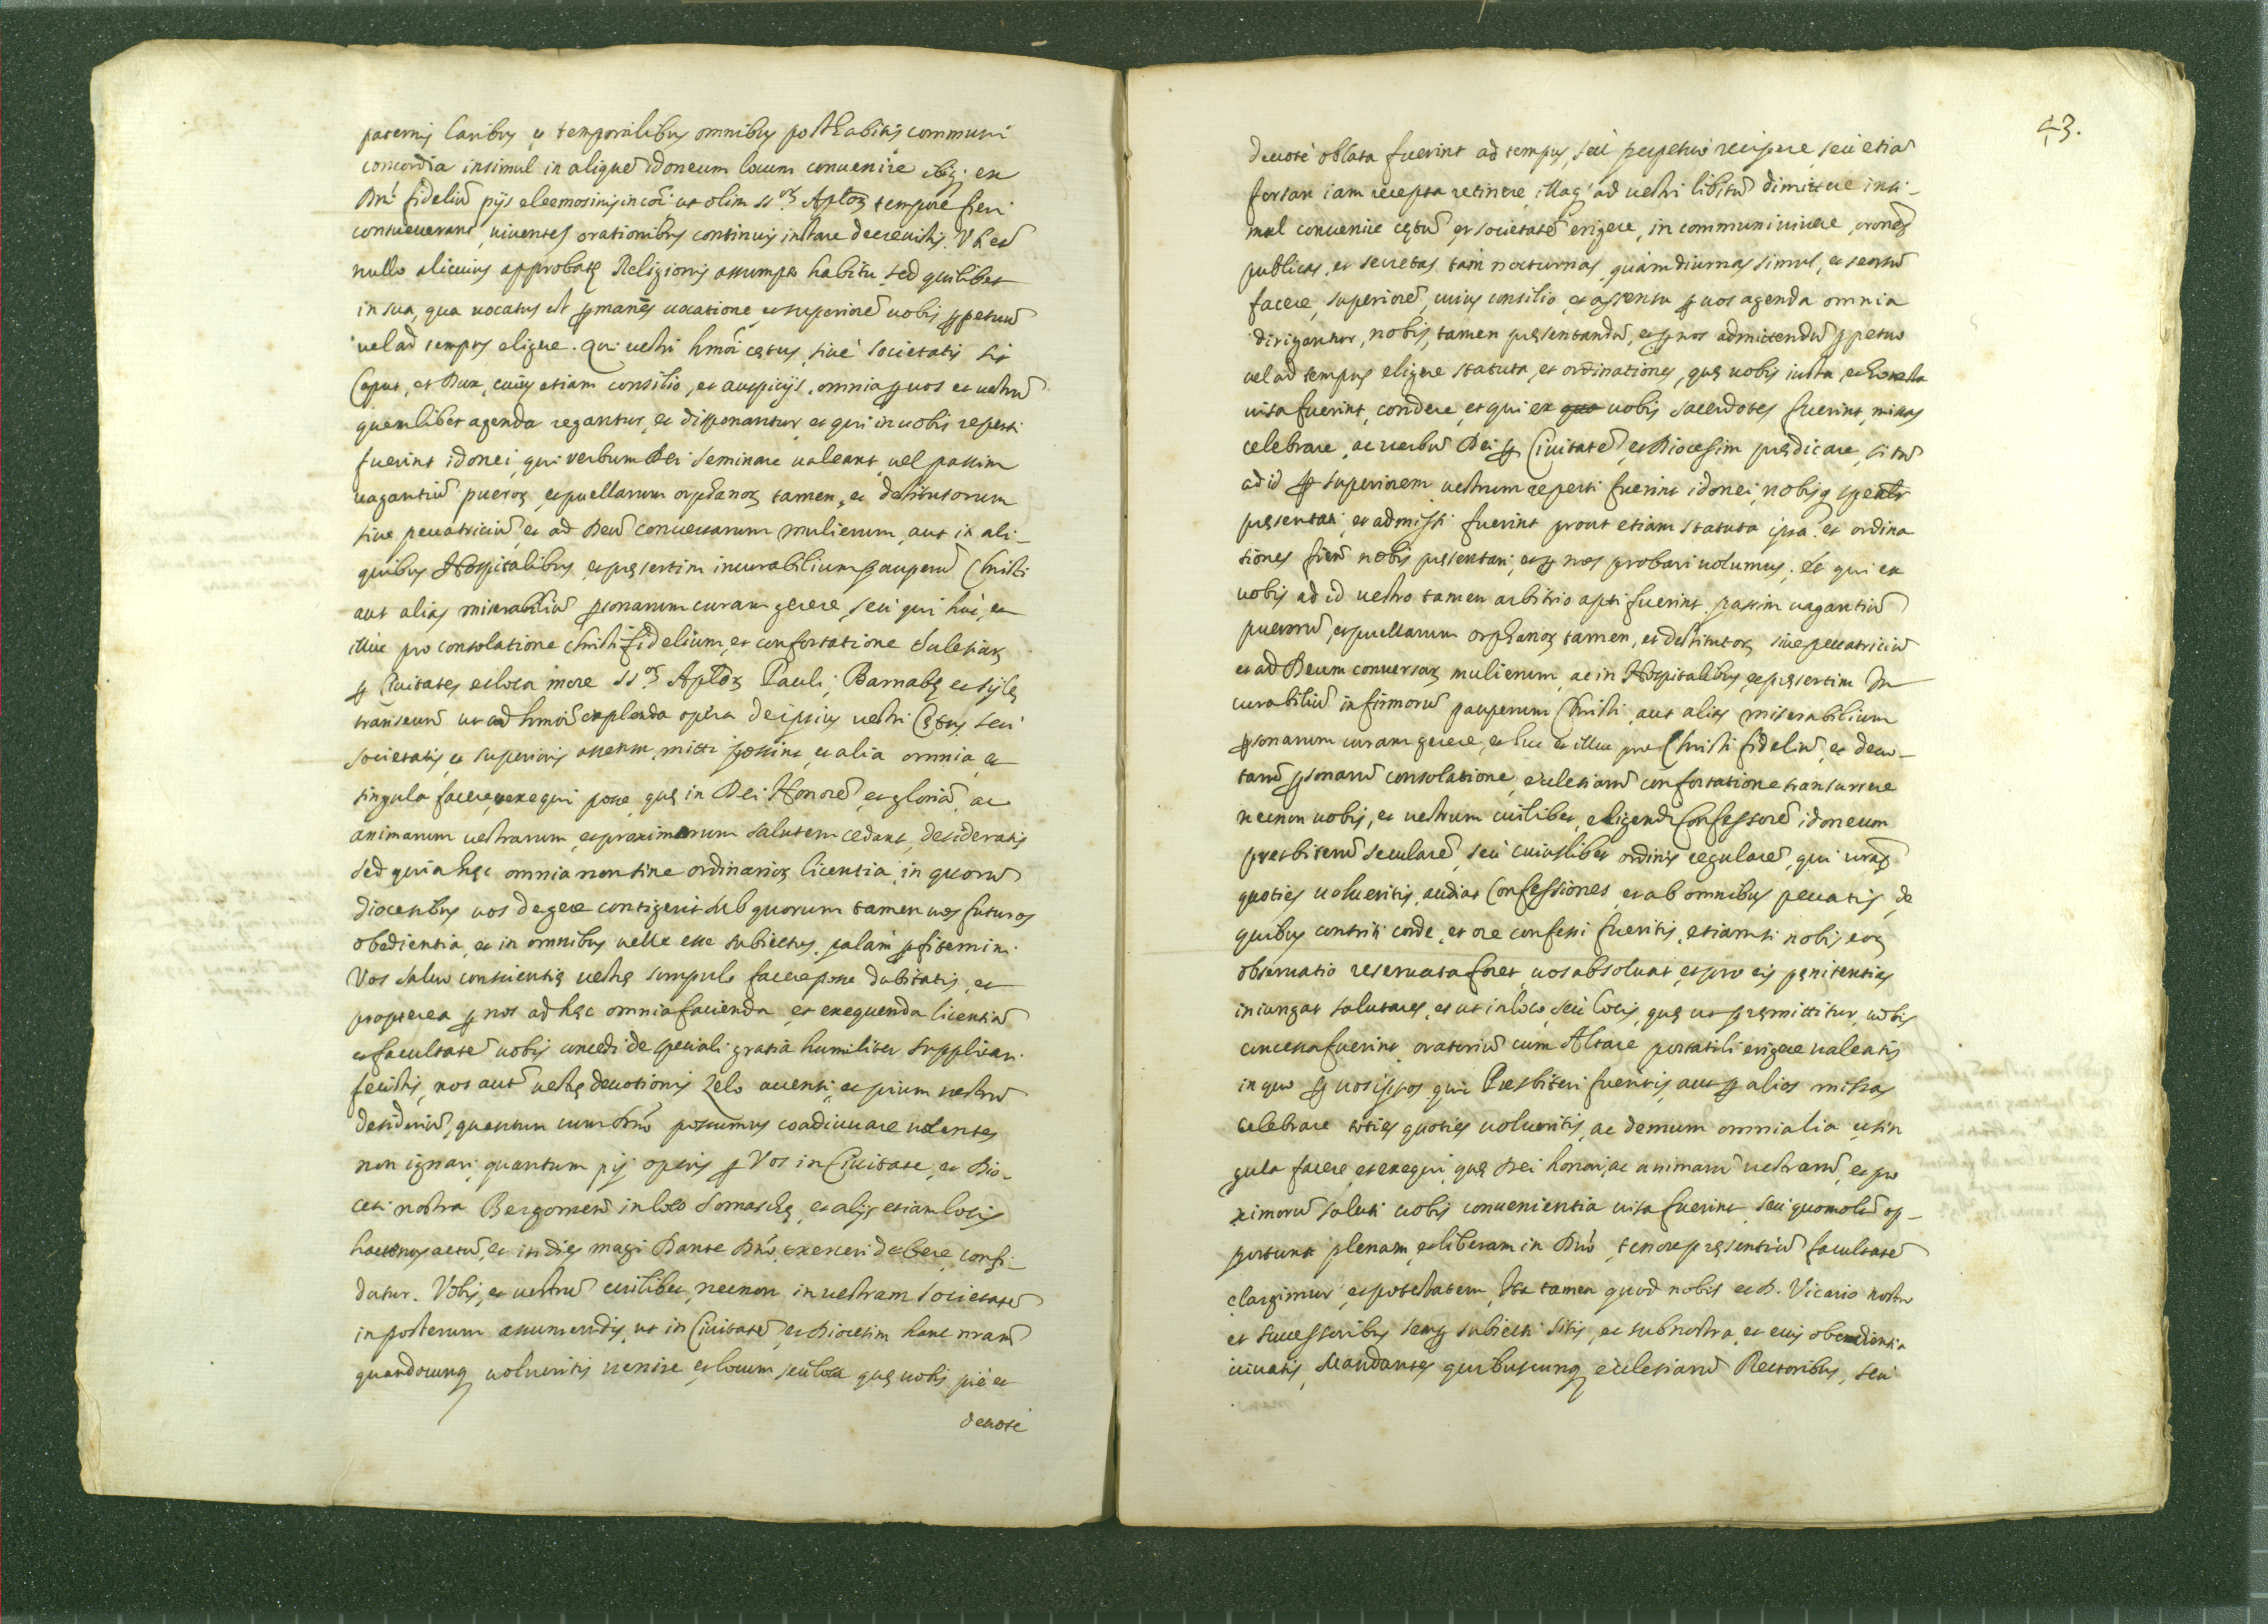 paternis laribus et temporalibus omnibus posthabitis communi
concordia insimul in aliquẽ idoneum locum convenire ibiq; ex
Dnĩ fideliũ pijs eleemosinis in cõi ut olim SS.or Aploʒ tempore fieri
consueverant, viventes orationibus continuis instare decrevistis.
nullo alicuius approbatę Religionis assumpto habitu sed quilibet
in sua, qua vocatus est ꝑmanẽs vocatione, et superiorẽ vobis ꝑpetuũ
vel ad tempus eligere. qui vestri hmõi cętus, sivé societatis sit
Caput, et Dux, cuius etiam consilio, et auspicijs, omnia ꝑ vos et vestrũ
quemlibet agenda regantur, et disponantur, et qui in vobis reperti
fuerint idonei, qui verbum Dei seminare valeant, vel passim
vagantiũ pueroʒ, et puellarum orphanoʒ tamen, et destitutorum
sive peccatriciũ, et ad Deũ conversarum mulierum, aut in ali-
quibus Hospitalibus, et pręsertim incurabilium pauperũ Christi
aut alias miserabiliũ ꝑsonarum curam gerere, seù qui hùc, et
illùc pro consolatione Christi fidelium, et confortatione Ecclesiaʒ
ꝑ Civitates et loca more SS.or Aploʒ Pauli, Barnabę et Sylę
transeunt ut ad hmõi explenda opera de ipsius vestri Cętus, seù
societatis, et superioris assensu mitti possint, et alia omnia, et
singula facere, et exequi posse, quę in Dei Honorẽ, et gloriã, ac
animarum vestrarum, et proximorum salutem cedant, desideratis
sed quia hęc omnia non sine ordinarioʒ licentia, in quorũ
diocesibus vos degere contigerit sub quorum tamen vos futuros
obedientia, et in omnibus velle esse subiectos, palàm ꝑfitemini
Vos salvo conscientię vestrę scrupulo facere posse dubitatis, et
propterea ꝑ nos ad hęc omnia facienda, et exequenda licentiã
et facultatẽ vobis concedi de speciali gratia humiliter supplicari
fecistis, nos aut̃ vestrę devotionis zelo accensi, et pium vestrũ
desideriũ, quantum cum Dnõ possumus coadiuvare volentes
non ignari, quantum pij operis ꝑ Vos in Civitate, et Dio-
cesi nostra Bergomeñ in loco Somaschę, et alijs etiam locis
hactenus actũ, et in dies magi Dante Dnõ, exerceri debere, confi-
datur. Vobis, et vestrũ cuilibet, necnon in vestram societatẽ
in posterum assumendis, ut in Civitatẽ, et Diocesim hanc nrãm
quandocunq volueritis venire, et locum, seù loca quę vobis piè et
devotè
43.
devotè oblata fuerint ad tempus seù perpetuò recipere, seù etiã
forsan iam recepta retinere, illaq; ad vestri libitũ dimittere insi-
mul convenire cętũ, et societatẽ erigere, in communi vivere, orones
publicas, et secretas tàm nocturnas, quàm diurnas simul, et seorsũ
facere, superiorẽ, cuius consilio, et assensu ꝑ vos agenda omnia
dirigantur, nobis, tamen pręsentandũ, et ꝑ nos admittendũ ꝑpetuo
vel ad tempus eligere statuta, et ordinationes, quę vobis iusta, et honesta
visa fuerint, condere, et qui ex vobis sacerdotes fuerint, missas
celebrare, ac verbũ Dei ꝑ Civitatẽ, et Diocesim prędicare, si tñ
ad id ꝑ superiorem vestrum reperti fuerint idonei, nobisq spẽaltr
pręsentati, et admissi fuerint prout etiam statuta ipsa, et ordina
tiones nobis pręsentari, et ꝑ nos probari volumus. Et qui ex
vobis ad id vestro tamen arbitrio apti fuerint passim vagantiũ
puerorũ, et puellarum orphanoʒ tamen, et destitutoʒ, sive peccatriciũ
et ad Deum conversaʒ mulierum, ac in Hospitalibus, et pręsertim In
curabiliũ infirmorũ pauperum Christi, aut alias miserabilium
ꝑsonarum curam gerere, et huc et illuc pro Christi fideliũ, et devo-
tarũ ꝑsonarũ consolatione, ecclesiarũ confortatione transcurrere
necnon vobis, et vestrum cuilibet, eligendi Confessorẽ idoneum
presbiterũ secularẽ, seù cuiuslibet ordinis regularẽ, qui vrãs
quoties volueritis, audiat Confessiones, et ab omnibus peccatis, de
quibus contriti corde, et ore confessi fueritis, etiam si nobis eoʒ
observatio reservata foret, vos absolvat, et pro eis pęnitentias
iniungat salutares, et ut in loco, seù locis, quę ut pręmittitur, vobis
concessa fuerint, oratoriũ cum Altare portatili erigere valeatis
in quo ꝑ vos ipsos qui Presbiteri fueritis, aut ꝑ alios missas
celebrare toties quoties volueritis, ac demum omnia alia, et sin
gula facere, et exequi, quę Dei honori, ac animarũ vestrarũ, et pro
ximorũ saluti vobis convenientia visa fuerint, seù quomolt̃ op-
portuna plenam, et liberam in Dnõ, tenore pręsentiũ facultatẽ
elargimur, et potestatem, Ita tamen quod nobis et D. Vicario nostro
et successoribus semꝑ subiecti sitis, et sub nostra, et eius obedientia
vivatis, Mandantes quibuscunq ecclesiarũ Rectoribus, seù